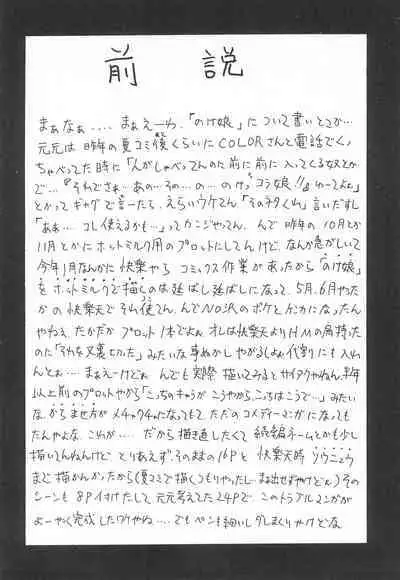 前説
まぁなぁ....まぁえーわ.「のけ娘」について書いとこか...
元元は昨年の夏コミ後くらいにCOLORさんと電話でくっ
ちゃべってた時に「人がしゃべってんのに前に前に入ってくる奴とか
で...『それでさぁ...あの...その...の...のけっコラ娘!!』ゆーてよぉ」
とかってギャグで言ーたら、えらいウケてん「そのネタくれ」言いだすし
「ああ...コレ使えるかも...」ってカンジやってん。んで昨年の10月とか
11月とかにホットミルク用のプロットにしてんけど、なんか急がしいて
今年1月なんかに快楽やら コミックス作業があったから「のけ娘」
をホットミルクで描くのは延ばし延ばしになって、5月、6月やった
かの快楽天でそれ使てん、んでNO沢のボケとケンカになったん
やねぇ たかだか プロット1本でよぉ オレは快楽天よりHMの肩持った
のに「それを又裏切った」みたいな事ぬかしやがるしよぉ代割にも入れ
んとぉ...まぁえーけどぉ んでも実際描いてみるとサイアクやねん、半年
以上前のプロットやから「こっちのキャラが こうやから、こっちはこうで...」みたい
な からませ方が メチャクチャになってもて ただのコメディーまンガになっても
たんやよな、これが....だから描き直したくて 続編ネームとかも少し
描いてんねんけど とりあえず、そのままの16Pと 快楽天時
まで描かんかったから(夏コミで描くつもりやったし...まぁ出せずやけどぉ)その
シーンも8P付けたして 元元考えてた24Pで、このトラブルマンガが
よーやく完成したワケやね...でもペンも細いし